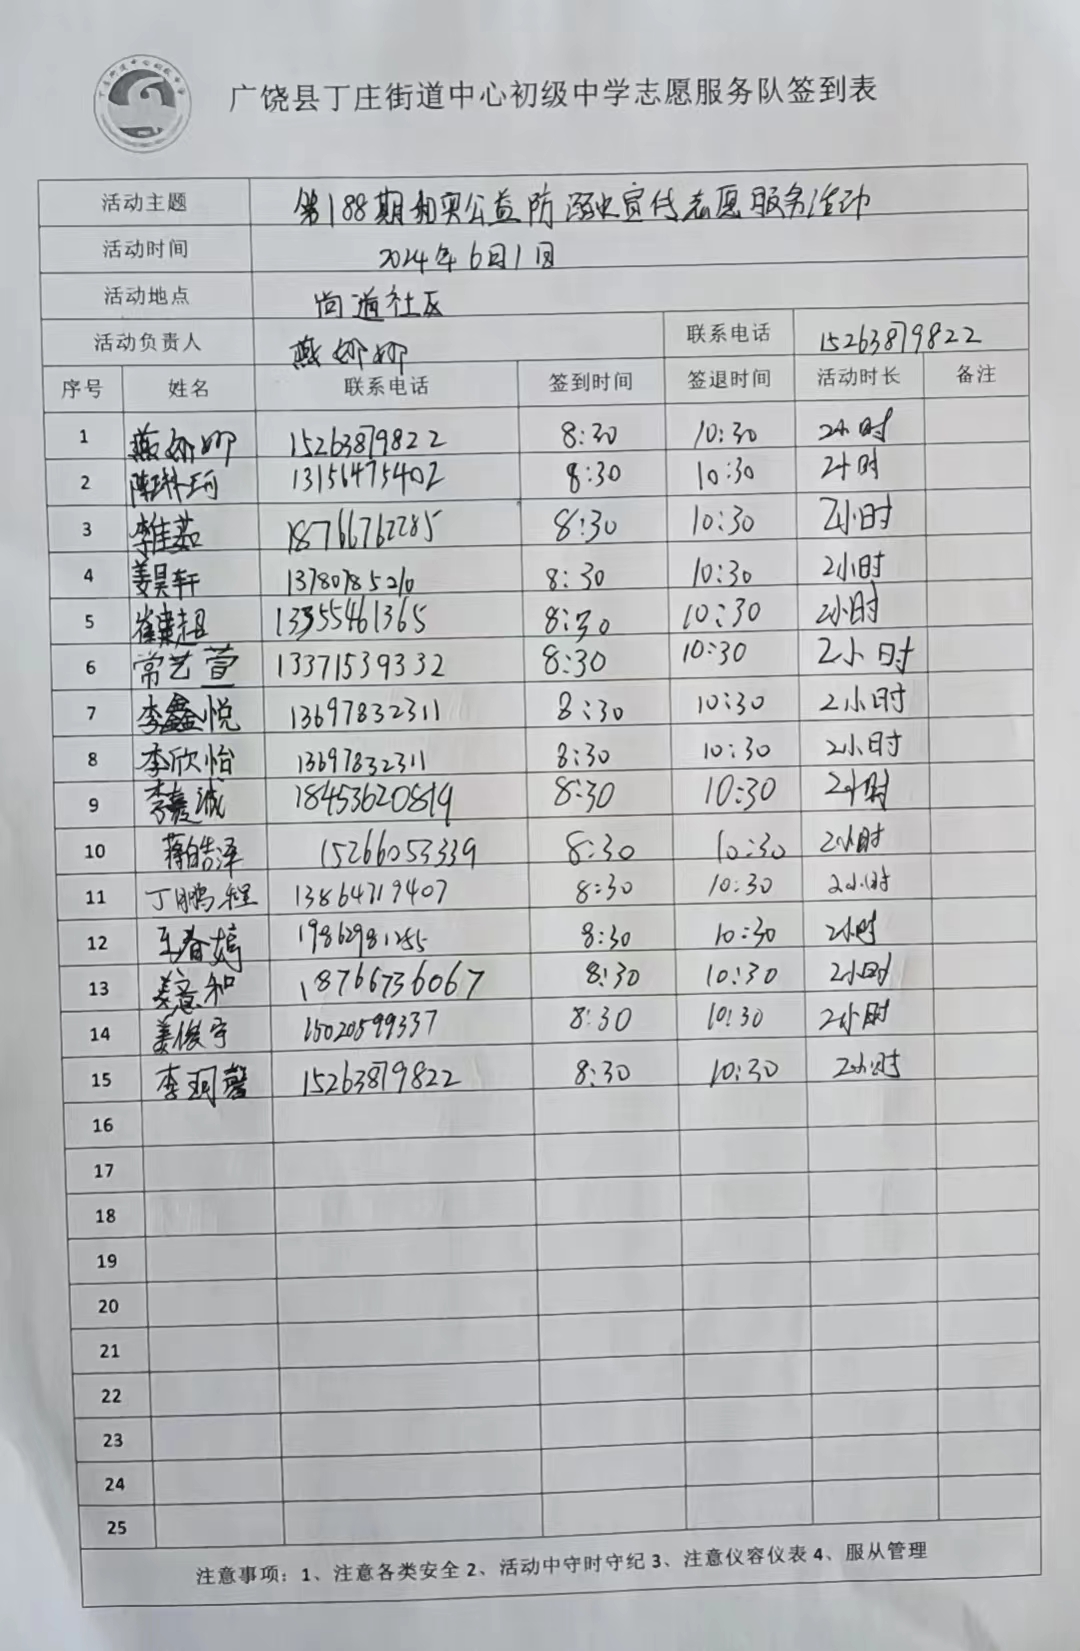 广饶县丁庄街道中心初级中学志愿服务队签到表
活动主题 第188期和奕公益防溺水宣传志愿服务活动
活动时间 2024年6月1日
活动地点 尚道社区
活动负责人 燕娜娜 联系电话 15263879822
序号 姓名 联系电话 签到时间 签退时间 活动时长 备注
1 燕娜娜 15263879822 8:30 10:30 2小时
2 13156475402 8:30 10:30 2小时
3 李佳茹 18766762285 8:30 10:30 2小时
4 姜昊轩 13780785210 8:30 10:30 2小时
5 崔建超 13355461365 8:30 10:30 2小时
6 常艺萱 13371539332 8:30 10:30 2小时
7 李鑫悦 13697832311 8:30 10:30 2小时
8 李欣怡 13697832311 8:30 10:30 2小时
9 李嘉诚 18453620819 8:30 10:30 2小时
10 蒋皓泽 15266053339 8:30 10:30 2小时
11 丁鹏程 13864719407 8:30 10:30 2小时
12 王春嫣 19862981255 8:30 10:30 2小时
13 姜意和 18766736067 8:30 10:30 2小时
14 姜俊宇 15020599337 8:30 10:30 2小时
15 李珂馨 15263879822 8:30 10:30 2小时
16
17
18
19
20
21
22
23
24
25
注意事项：1、注意各类安全 2、活动中守时守纪 3、注意仪容仪表 4、服从管理